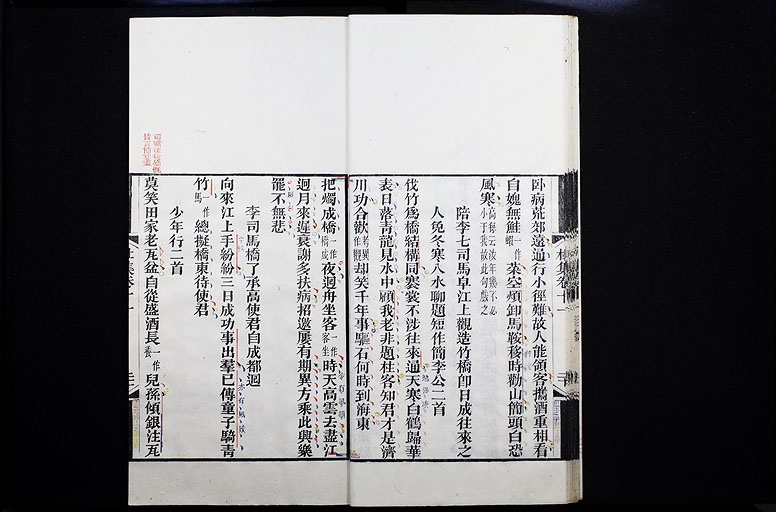 臥病荒郊遠通行小徑難故人能領客攜酒重相看
自媿無鮭一作蝦菜空煩卸馬鞍移時勸山簡頭白恐
風寒高每云汝年幾不必小于我故此句戲之
陪李七司馬皁江上觀造竹橋卽日成往來之
人免冬寒入水聊題短作簡李公二首
伐竹爲橋結構同褰裳不涉往來通天寒白鶴歸華
表日落青龍見水中顧我老非題柱客知君才是濟
川功合歡考異作觀却笑千年事驅石何時到海東
把燭成橋一作橋成夜迴舟坐客一作客坐時天高雲去盡江
迥月來遲衰謝多扶病招邀屢有期異方乘此興樂
罷不無悲
李司馬橋了承高使君自成都迴
向來江上手紛紛三日成功事出羣已傳童子騎青
竹一作馬總擬橋東待使君
少年行二首
莫笑田家老瓦盆自從盛酒長一作養兒孫傾銀注瓦
杜集卷十一